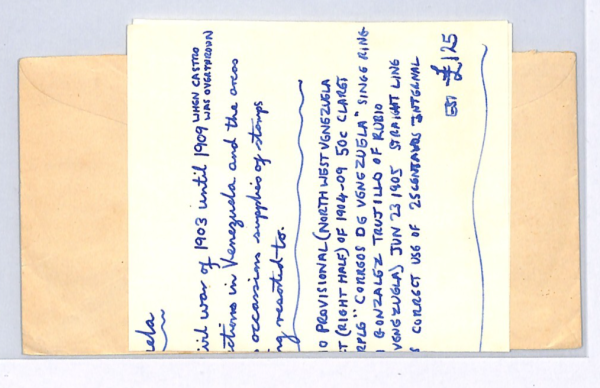 uela
ivil war of 1903 until 1909 WHEN CASTRO WAS OVERTHROWN
ctions in Venezuela and the areas
occassions supplies of stamps
ng resorted to.
O PROVISIONAL (NORTH WEST VENEZUELA
T (RIGHT HALF) OF 1904-09 50c CLARET
RPLE "CORREOS DE VENEZUELA" SINGE RING
GONZALEZ TRUJILLO OF RUBIO
VENEZUELA) JUN 23 1905 STRAIGHT LINE
S CORRECT USE OF 25 CENTAVOS INTERNAL
EST £125